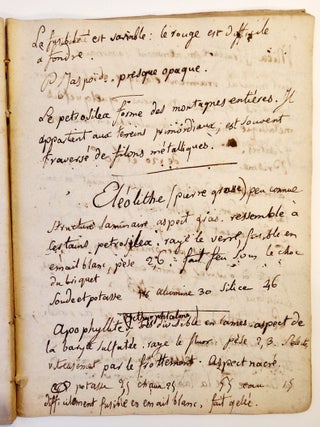 La fusibilité est variable : le rouge est difficile
à fondre.
P. Jaspoïde. presque opaque.
Le petrosilex forme des montagnes entières. Il
appartient aux terreins primordiaux, est souvent
traversé de filons métalliques.
Eléolithe (pierre grasse) peu connue
structure laminaire aspect gras. ressemble à
certains petrosilex. raye le verre, fusible en
email blanc, pèse 2,6. fait feu sous le choc
du briquet
Soude et potasse alumine 30 silice 46
Apophyllite (Ichtyophtalme) divisible en lames. aspect de
la baryte sulfatée. raye le fluor. pèse 2,3. S'électrise
vitreusement par le frottement. Aspect nacré
potasse chaux 25 eau 15
difficilement fusible en email blanc, fait gelée.